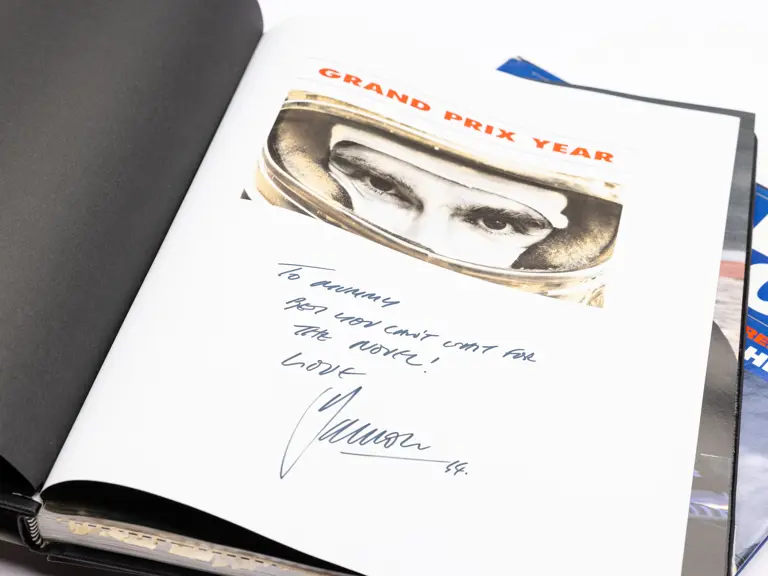 GRAND PRIX YEAR
To MUMMY
BET YOU CAN'T WAIT FOR
THE NOVEL!
LOVE
Damon